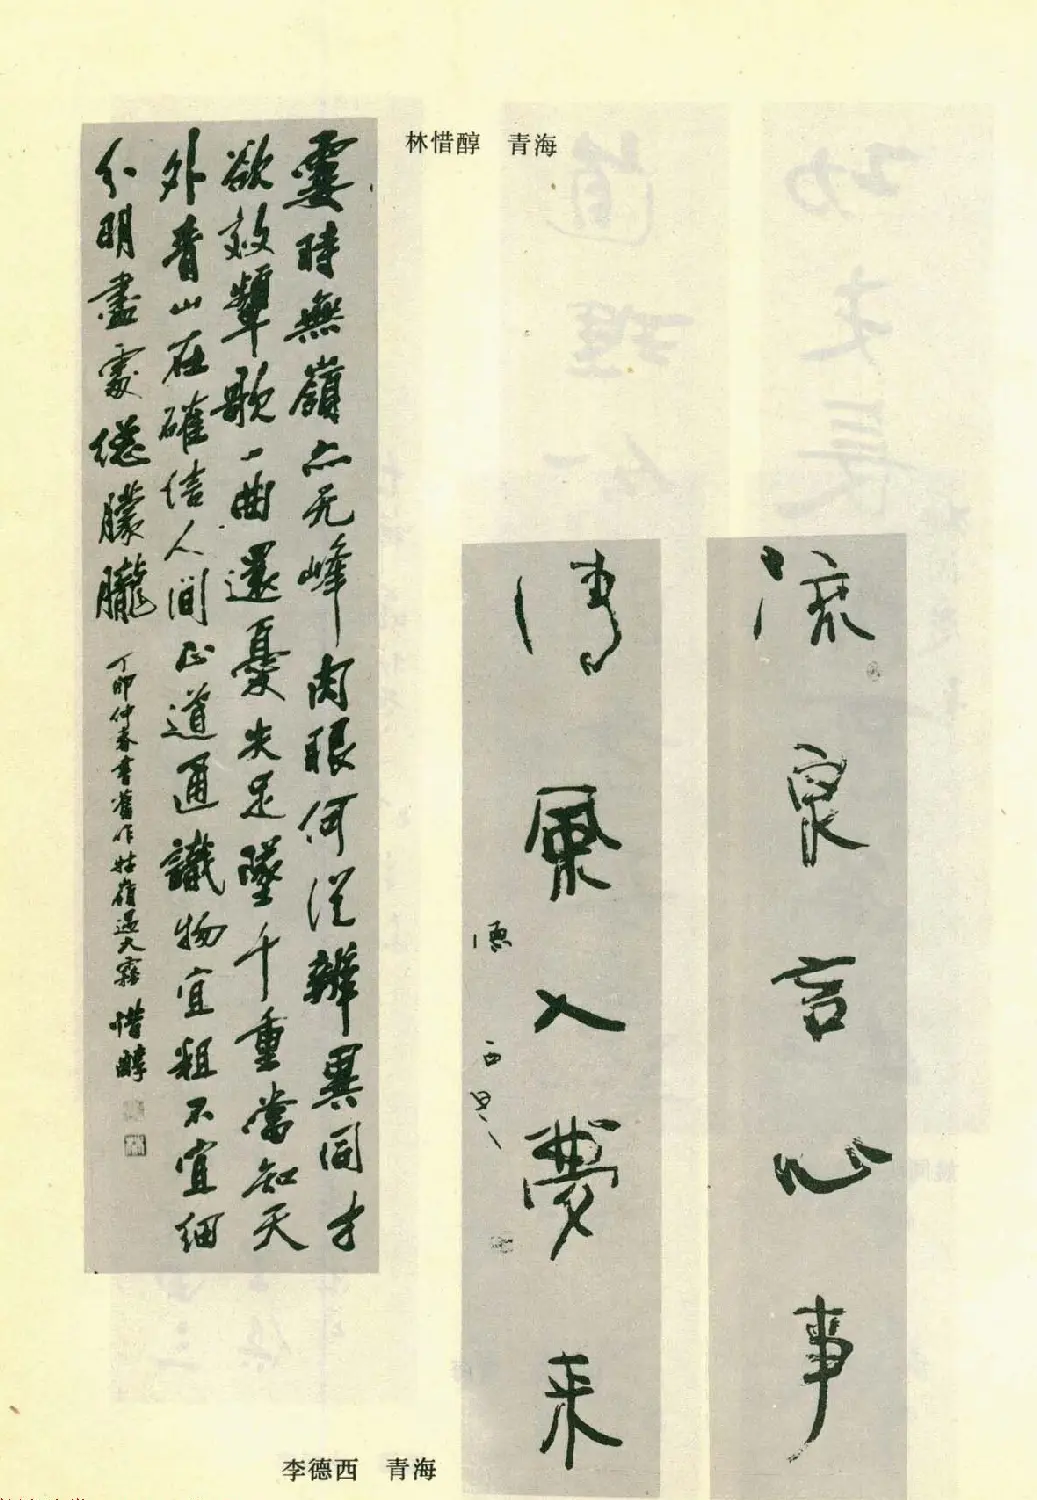 林惜醇 青海
霎時無嶺亦无峰肉眼何從辨異同才
欲效颦歌一曲還憂失足墜千重當知天
外青山在確信人间正道通識物宜粗不宜細
分明盡處總朦朧
丁卯仲春書舊作牯嶺遇大霧 惜醇
流泉言心事
清風入夢來
德西
李德西 青海